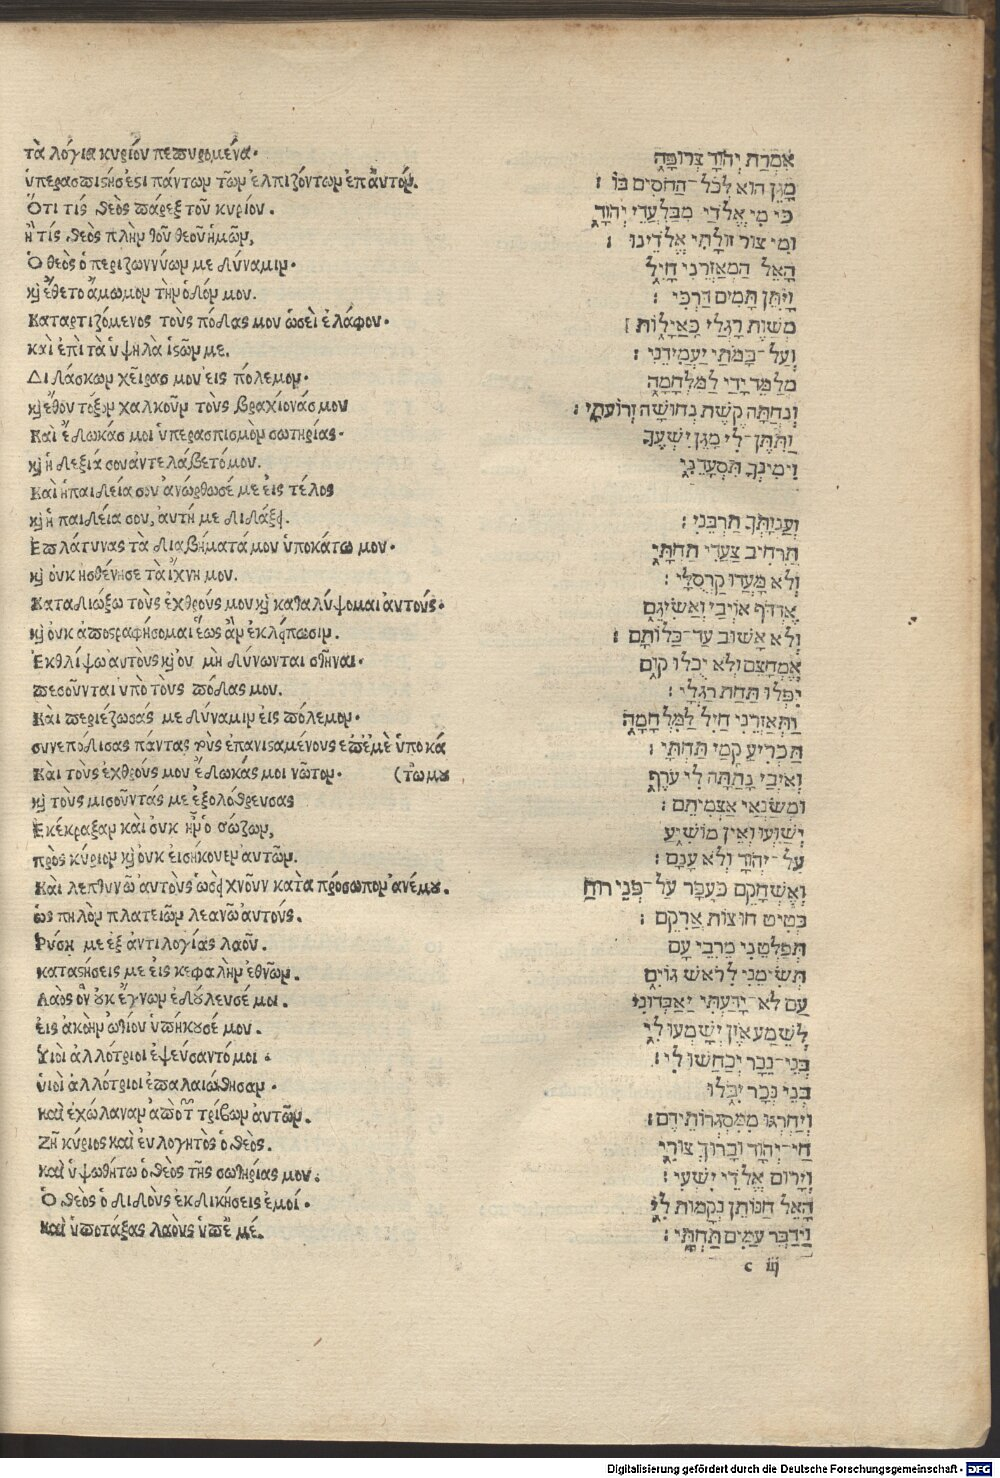 τὰ λόγια κυρίου πεπυρομένα·
ὑπερασπιστής ἐστι πάντων τῶν ἐλπιζόντων ἐπ' αὐτόν.
Ὅτι τίς θεὸς πάρεξ τοῦ κυρίου.
ἢ τίς θεὸς πλὴν τοῦ θεοῦ ἡμῶν,
Ὁ θεὸς ὁ περιζωννύων με δύναμιν·
καὶ ἔθετο ἄμωμον τὴν ὁδόν μου.
Καταρτιζόμενος τοὺς πόδας μου ὡσεὶ ἐλάφου·
καὶ ἐπὶ τὰ ὑψηλὰ ἱστῶν με.
Διδάσκων χεῖρας μου εἰς πόλεμον·
καὶ ἔθου τόξον χαλκοῦν τοὺς βραχίονάς μου
Καὶ ἔδωκάς μοι ὑπερασπισμὸν σωτηρίας·
καὶ ἡ δεξιά σου ἀντελάβετό μου.
Καὶ ἡ παιδεία σου ἀνώρθωσέ με εἰς τέλος
καὶ ἡ παιδεία σου, αὐτή με διδάξει.
Ἐπλάτυνας τὰ διαβήματά μου ὑποκάτω μου·
καὶ οὐκ ἠσθένησε τὰ ἴχνη μου.
Καταδιώξω τοὺς ἐχθρούς μου καὶ καταλήψομαι αὐτούς·
καὶ οὐκ ἀποστραφήσομαι ἕως ἂν ἐκλείπωσιν.
Ἐκθλίψω αὐτοὺς καὶ οὐ μὴ δύνωνται στῆναι·
πεσοῦνται ὑπὸ τοὺς πόδας μου.
Καὶ περιέζωσάς με δύναμιν εἰς πόλεμον·
συνεπόδισας πάντας τοὺς ἐπανισταμένους ἐπ' ἐμὲ ὑποκά
Καὶ τοὺς ἐχθρούς μου ἔδωκάς μοι νῶτον· (τω μου
καὶ τοὺς μισοῦντάς με ἐξολόθρευσας
Ἐκέκραξαν καὶ οὐκ ἦν ὁ σώζων,
πρὸς κύριον καὶ οὐκ εἰσήκουεν αὐτῶν.
Καὶ λεπτυνῶ αὐτοὺς ὡσεὶ χνοῦν κατὰ πρόσωπον ἀνέμου.
ὡς πηλὸν πλατειῶν λεανῶ αὐτούς.
Ῥύσῃ με ἐξ ἀντιλογίας λαοῦ.
καταστήσεις με εἰς κεφαλὴν ἐθνῶν.
Λαὸς ὃν οὐκ ἔγνων ἐδούλευσέ μοι.
εἰς ἀκοὴν ὠτίου ὑπήκουσέ μου.
Υἱοὶ ἀλλότριοι ἐψεύσαντό μοι·
υἱοὶ ἀλλότριοι ἐπαλαιώθησαν·
καὶ ἐχώλαναν ἀπὸ τῶν τρίβων αὐτῶν.
Ζῆ κύριος καὶ εὐλογητὸς ὁ θεὸς.
καὶ ὑψωθήτω ὁ θεὸς τῆς σωτηρίας μου.
Ὁ θεὸς ὁ διδοὺς ἐκδικήσεις ἐμοί·
καὶ ὑποτάξας λαοὺς ὑπ' ἐμέ.
אִמְרַת יְהוָֹד צְרוּפָה
מָגֵן הוּא לְכֹל־הַחֹסִים בּוֹ׃
כִּי מִי אֱלֹדַי מִבַּלְעֲדֵי יְהוָֹד
וּמִי צוּר זוּלָתִי אֱלֹדֵינוּ׃
הָאֵל הַמְאַזְּרֵנִי חָיִל
וַיִּתֵּן תָּמִים דַּרְכִּי׃
מְשַׁוֶּה רַגְלַי כָּאַיָּלוֹת
וְעַל־בָּמֹתַי יַעֲמִידֵנִי׃
מְלַמֵּד יָדַי לַמִּלְחָמָה
וְנִחֲתָה קֶשֶׁת נְחוּשָׁה זְרוֹעֹתָי׃
וַתִּתֶּן־לִי מָגֵן יִשְׁעֶךָ
וִימִינְךָ תִסְעָדֵנִי
וְעַנְוַתְךָ תַרְבֵּנִי׃
תַּרְחִיב צַעֲדִי תַחְתָּי
וְלֹא מָעֲדוּ קַרְסֻלָּי׃
אֶרְדּוֹף אוֹיְבַי וְאַשִּׂיגֵם
וְלֹא אָשׁוּב עַד־כַּלּוֹתָם׃
אֶמְחָצֵם וְלֹא יֻכְלוּ קוּם
יִפְּלוּ תַּחַת רַגְלָי׃
וַתְּאַזְּרֵנִי חַיִל לַמִּלְחָמָה
תַּכְרִיעַ קָמַי תַּחְתָּי׃
וְאֹיְבַי נָתַתָּה לִּי עֹרֶף
וּמְשַׂנְאַי אַצְמִיתֵם׃
יְשַׁוְּעוּ וְאֵין מוֹשִׁיעַ
עַל־יְהוָֹד וְלֹא עָנָם׃
וְאֶשְׁחָקֵם כְּעָפָר עַל־פְּנֵי רוּחַ
כְּטִיט חוּצוֹת אֲרִקֵם׃
תְּפַלְּטֵנִי מֵרִבֵי עָם
תְּשִׂימֵנִי לְרֹאשׁ גּוֹיִם
עַם לֹא־יָדַעְתִּי יַאַבְדוּנִי
לְשֵׁמַע אֹזֶן יִשָּׁמְעוּ לִי
בְּנֵי־נֵכָר יְכַחֲשׁוּ לִי׃
בְּנֵי נֵכָר יִבֹּלוּ
וְיַחְרְגוּ מִמִּסְגְּרוֹתֵידֶם׃
חַי־יְהוָֹד וּבָרוּךְ צוּרִי
וְיָרוּם אֱלֹדֵי יִשְׁעִי׃
הָאֵל הַנּוֹתֵן נְקָמוֹת לִי
וַיַּדְבֵּר עַמִּים תַּחְתָּי׃
c iij
Digitalisierung gefördert durch die Deutsche Forschungsgemeinschaft - DFG